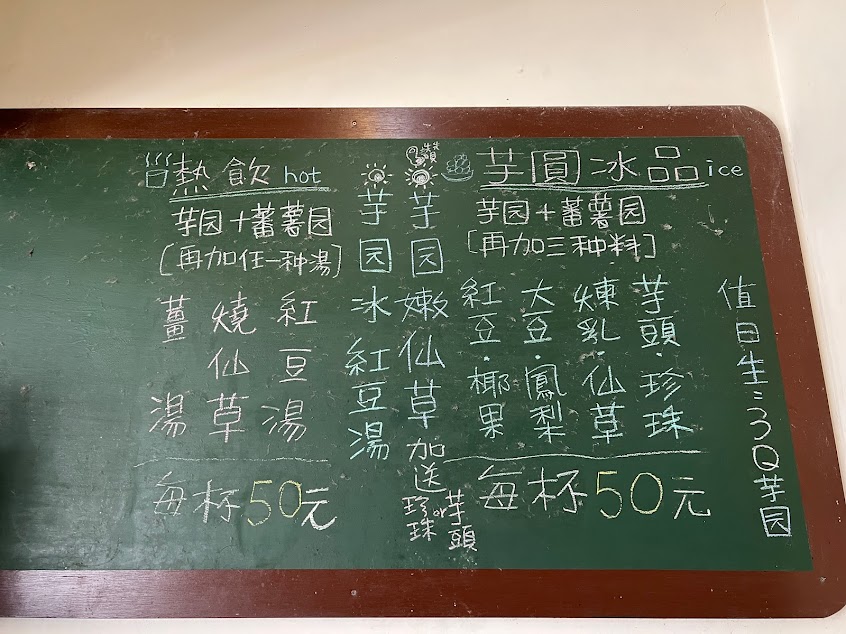 值日生:3Q芋园
芋圓冰品 ice
芋园+蕃薯园
[再加三种料]
芋頭·珍珠
煉乳·仙草
大豆·鳳梨
紅豆·椰果
每杯50元
讚
芋园嫩仙草加送珍珠or芋頭
芋园冰紅豆湯
熱飲 hot
芋园+蕃薯园
[再加任一种湯]
紅豆湯
燒仙草
薑湯
每杯50元